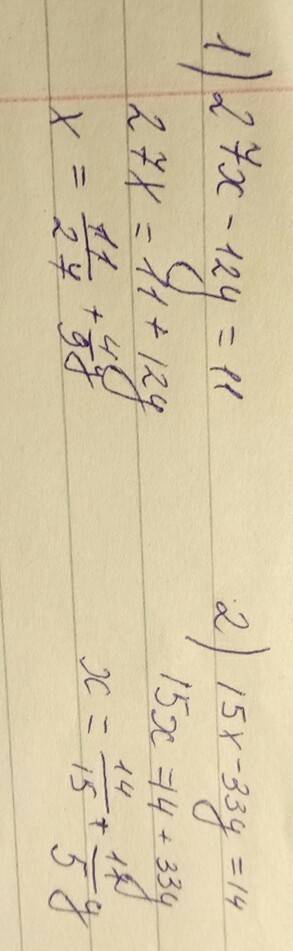 1) 27x - 12y = 11
27x = 11 + 12y
x = 11/27 + 4/9 y
2) 15x - 33y = 14
15x = 14 + 33y
x = 14/15 + 11/5 y